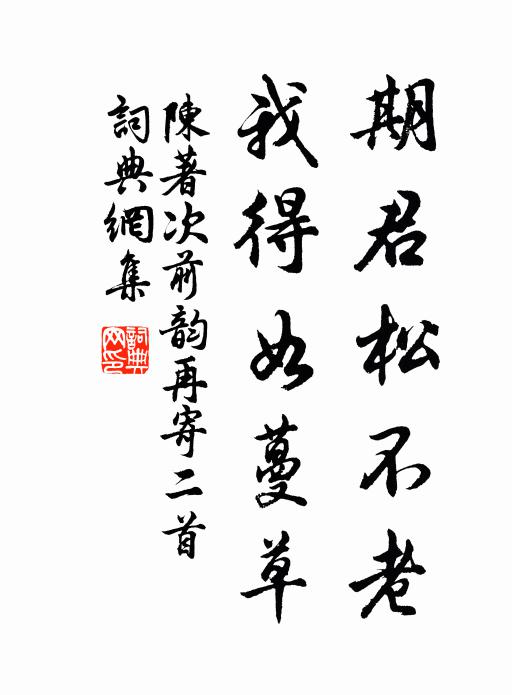 期君松不老
我得如蔓草
陳著次前韵再寄二首
詞典網集
詞典网印